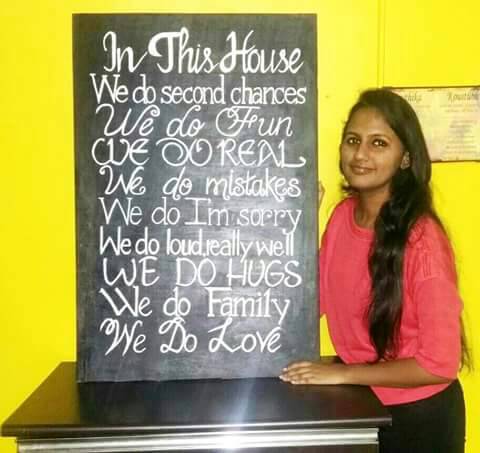 In This House
We do second chances
We do Fun
WE DO REAL
We do mistakes
We do I'm sorry
We do loud, really well
WE DO HUGS
We do Family
We Do Love